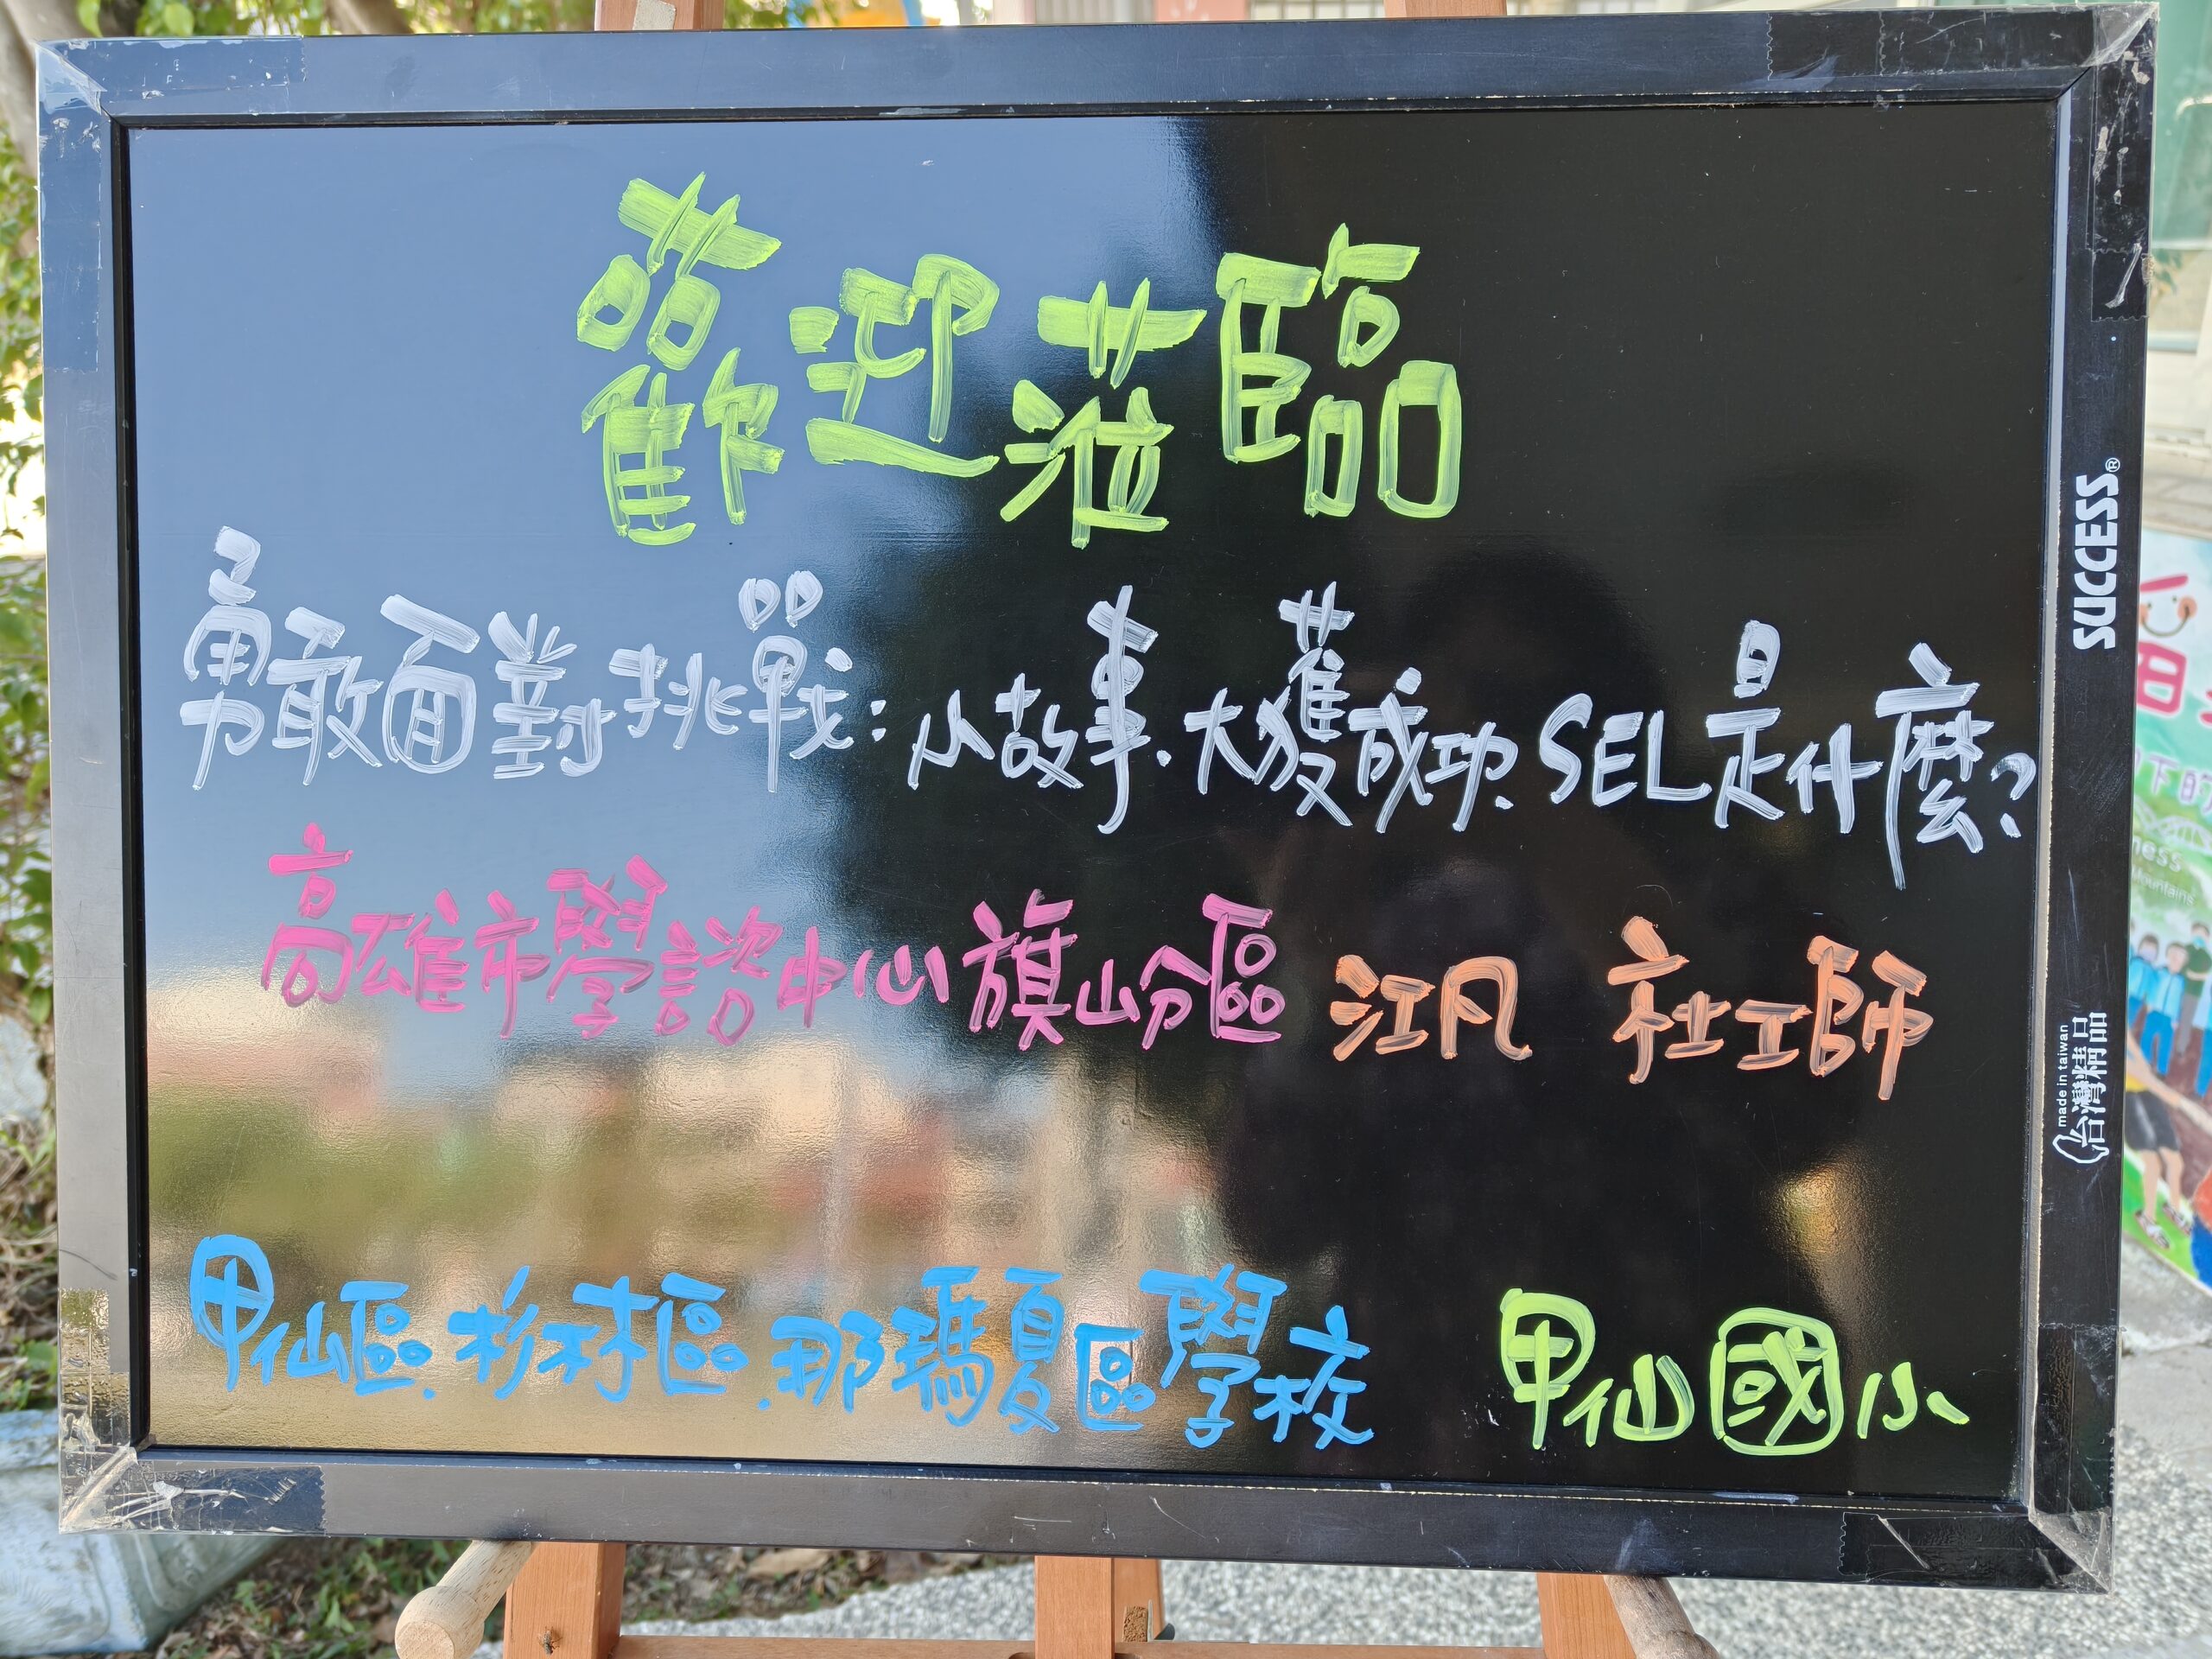 歡迎蒞臨
勇敢面對挑戰:从故事.大獲成功.SEL是什麼?
高雄市學諮中心旗山分區 江凡 社工師
甲仙區.杉林區.那瑪夏區學校 甲仙國小
SUCCESS®
made in taiwan
台灣精品
ness
Mountains